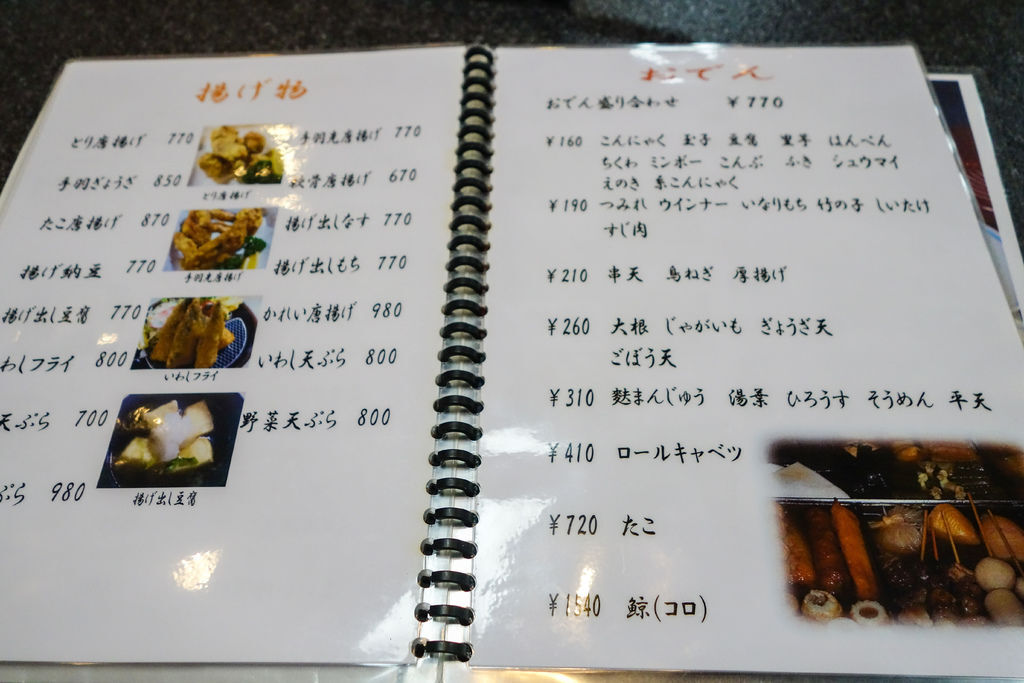 揚げ物
とり唐揚げ 770
手羽先唐揚げ 770
とり唐揚げ
手羽ぎょうざ 850
軟骨唐揚げ 670
たこ唐揚げ 870
揚げ出しなす 770
手羽先唐揚げ
揚げ納豆 770
揚げ出しもち 770
揚げ出し豆腐 770
かれい唐揚げ 980
いわしフライ
わしフライ 800
いわし天ぷら 800
天ぷら 700
野菜天ぷら 800
揚げ出し豆腐
ぷら 980
おでん
おでん盛り合わせ ¥770
¥160 こんにゃく 玉子 豆腐 里芋 はんぺん
ちくわ ミンボー こんぶ ふき シュウマイ
えのき 糸こんにゃく
¥190 つみれ ウインナー いなりもち 竹の子 しいたけ
すじ肉
¥210 串天 鳥ねぎ 厚揚げ
¥260 大根 じゃがいも ぎょうざ天
ごぼう天
¥310 麩まんじゅう 湯葉 ひろうす そうめん 平天
¥410 ロールキャベツ
¥720 たこ
¥1540 鯨(コロ)